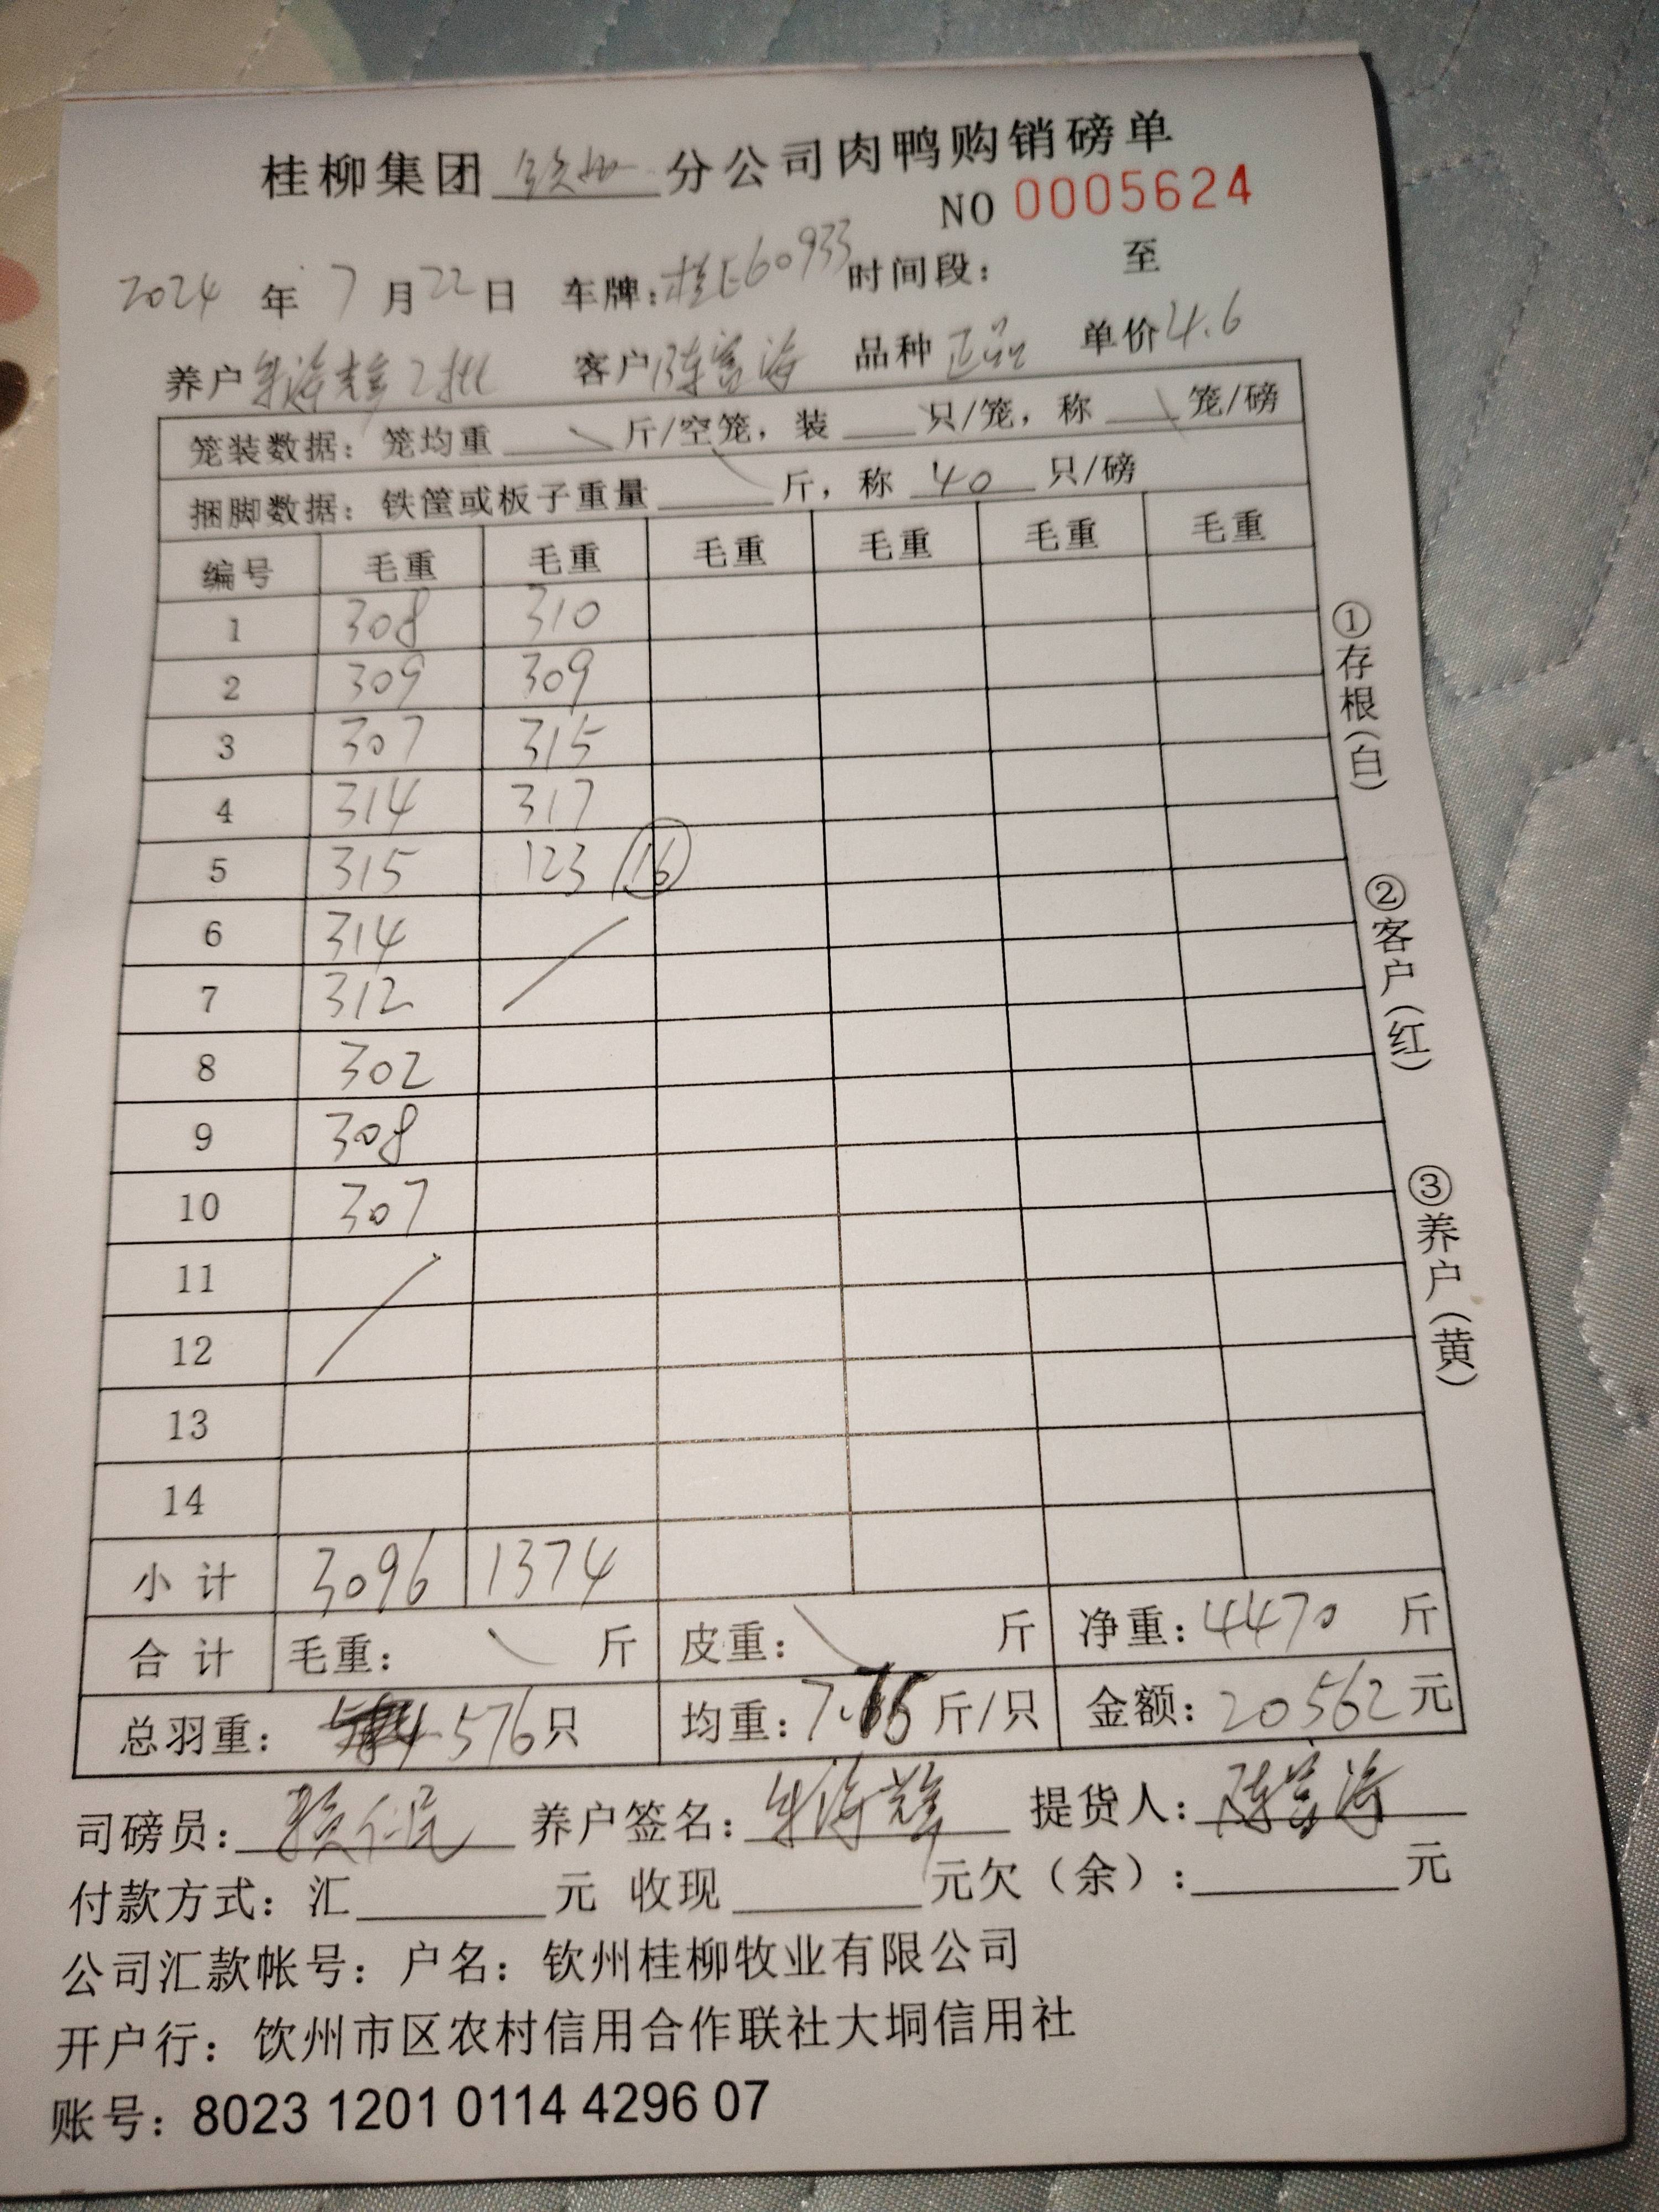 桂柳集团 钦州 分公司肉鸭购销磅单
NO 0005624
2024 年 7 月 22 日 车牌:桂E60933 时间段: 至
养户 朱海辉2批 客户 陈富海 品种 正品 单价 4.6
笼装数据: 笼均重 斤/空笼, 装 只/笼, 称 笼/磅
捆脚数据: 铁筐或板子重量 斤, 称 40 只/磅
编号 毛重 毛重 毛重 毛重 毛重 毛重
1 308 310
2 309 309
3 307 315
4 314 317
5 315 123 16
6 314
7 312
8 302
9 308
10 307
11
12
13
14
小计 3096 1374
合计 毛重: 斤 皮重: 斤 净重: 4470 斤
总羽重: 576只 均重: 7.75 斤/只 金额: 20562 元
司磅员: 养户签名: 朱海辉 提货人: 陈富海
付款方式: 汇 元 收现 元欠(余): 元
公司汇款帐号: 户名: 钦州桂柳牧业有限公司
开户行: 饮州市区农村信用合作联社大垌信用社
账号: 8023 1201 0114 4296 07
①存根(白)
②客户(红)
③养户(黄)